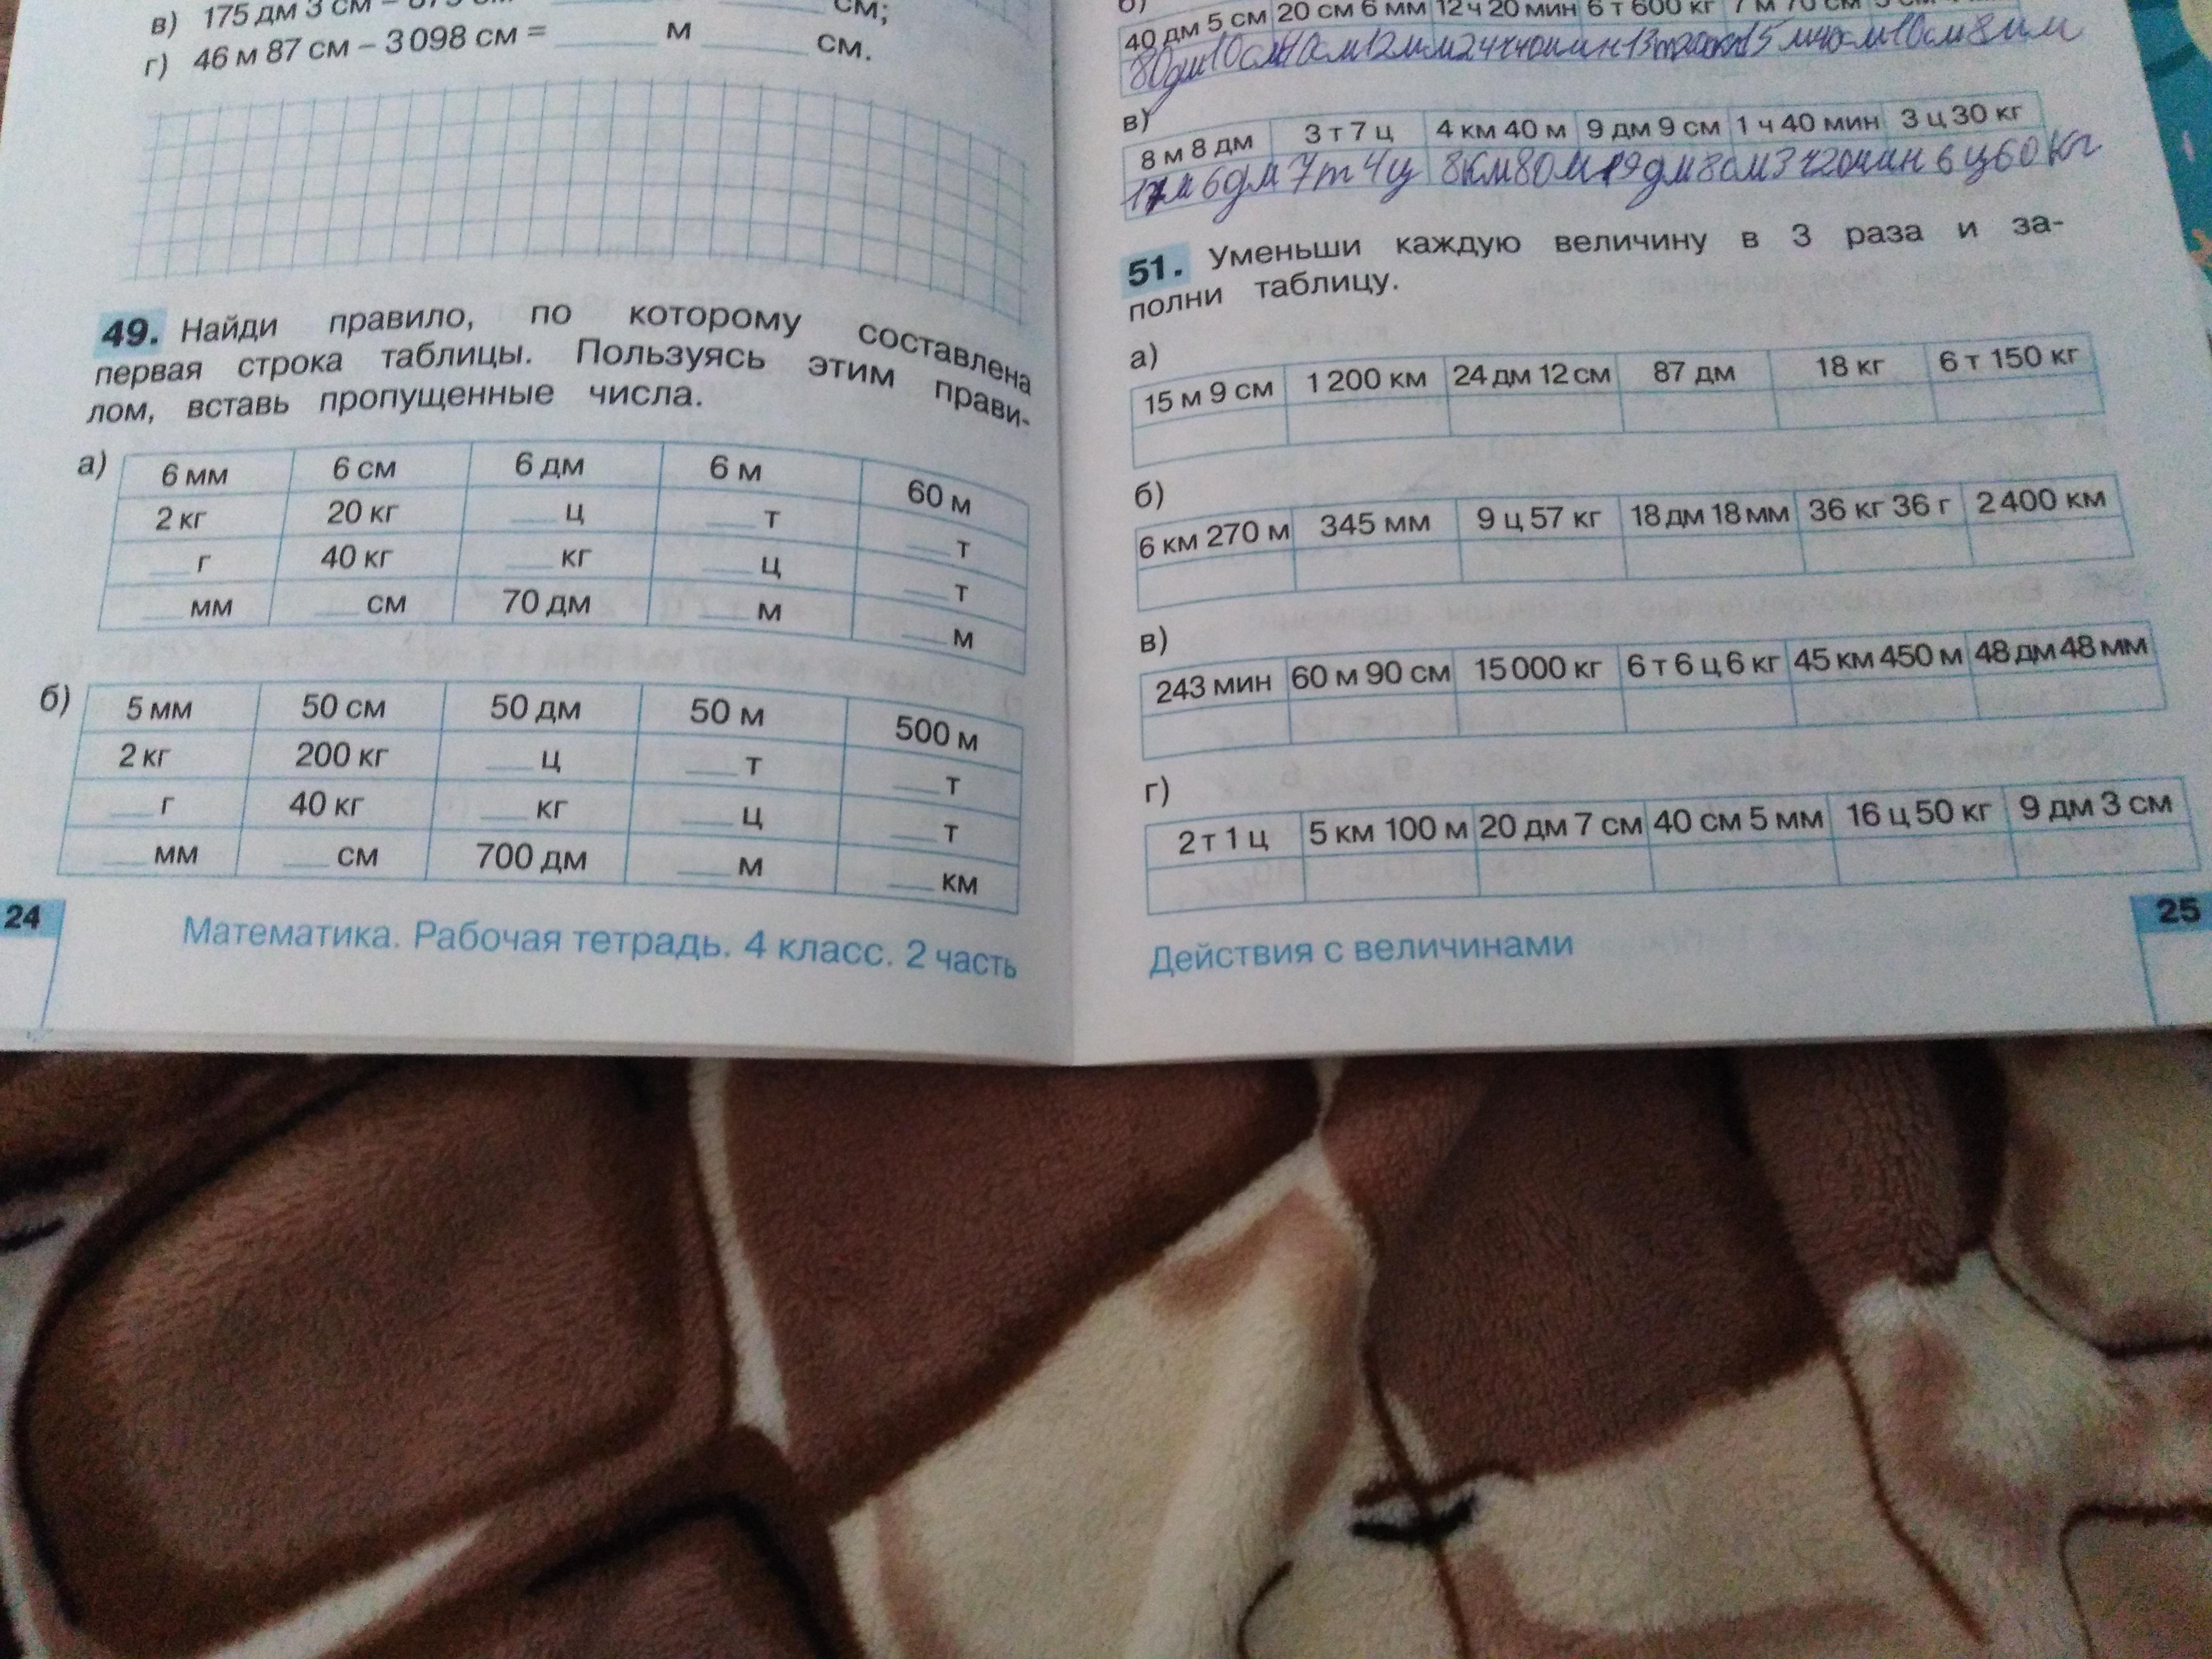 в) 175 дм 3 см –
см;
г) 46 м 87 см – 3 098 см = ____ м ____ см.
49. Найди правило, по которому составлена
первая строка таблицы. Пользуясь этим прави-
лом, вставь пропущенные числа.
а)
6 мм 6 см 6 дм 6 м 60 м
2 кг 20 кг __ ц __ т __ т
__ г 40 кг __ кг __ ц __ т
__ мм __ см 70 дм __ м __ м
б)
5 мм 50 см 50 дм 50 м 500 м
2 кг 200 кг __ ц __ т __ т
__ г 40 кг __ кг __ ц __ т
__ мм __ см 700 дм __ м __ км
24
Математика. Рабочая тетрадь. 4 класс. 2 часть
б)
40 дм 5 см 20 см 6 мм 12 ч 20 мин 6 т 600 кг 7 м 70 см
80дм10см 40см12мм 24ч40мин 13т200кг 15м40см 10см8мм
в)
8 м 8 дм 3 т 7 ц 4 км 40 м 9 дм 9 см 1 ч 40 мин 3 ц 30 кг
17м 6дм 7т 4ц 8км80м 19дм8см 3ч20мин 6ц60кг
51. Уменьши каждую величину в 3 раза и за-
полни таблицу.
а)
15 м 9 см 1 200 км 24 дм 12 см 87 дм 18 кг 6 т 150 кг
б)
6 км 270 м 345 мм 9 ц 57 кг 18 дм 18 мм 36 кг 36 г 2 400 км
в)
243 мин 60 м 90 см 15 000 кг 6 т 6 ц 6 кг 45 км 450 м 48 дм 48 мм
г)
2 т 1 ц 5 км 100 м 20 дм 7 см 40 см 5 мм 16 ц 50 кг 9 дм 3 см
Действия с величинами
25